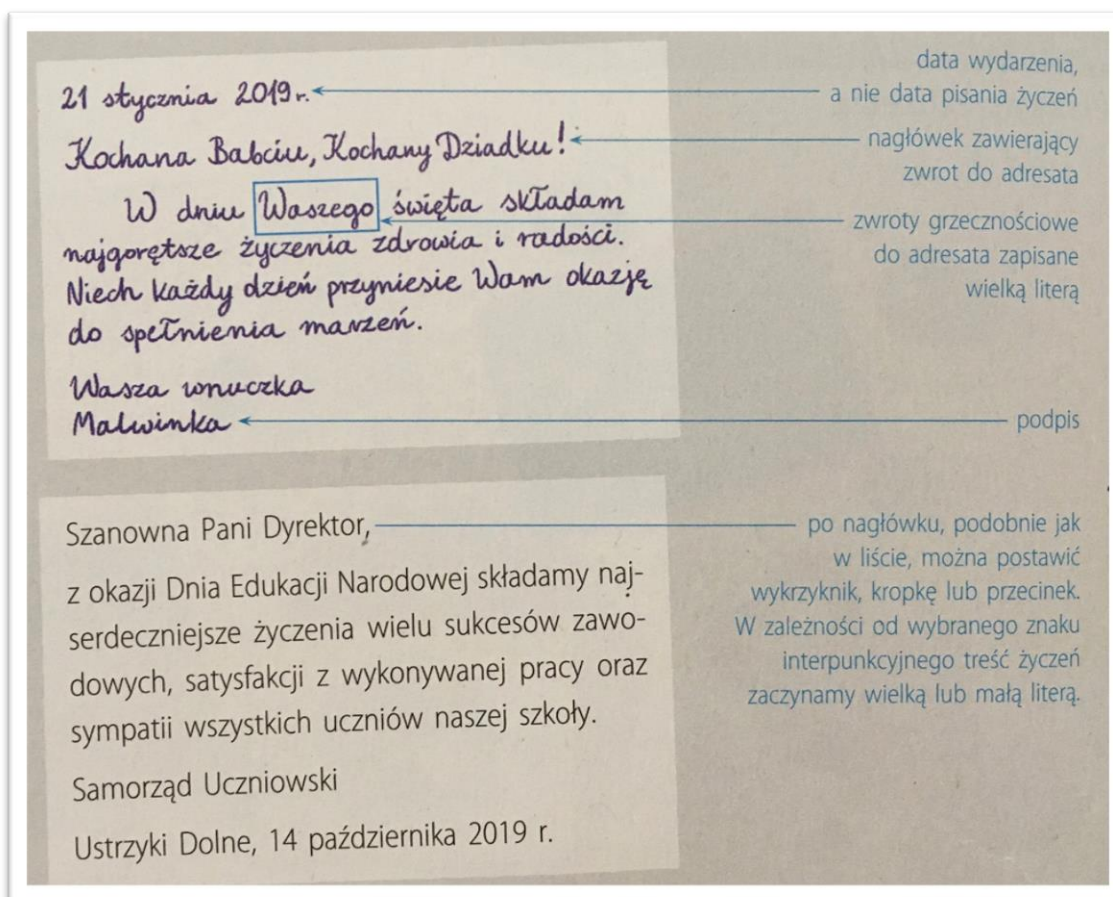 21 stycznia 2019 r.
Kochana Babciu, Kochany Dziadku!
W dniu Waszego święta składam
najgorętsze życzenia zdrowia i radości.
Niech każdy dzień przyniesie Wam okazję
do spełnienia marzeń.
Wasza wnuczka
Malwinka
data wydarzenia,
a nie data pisania życzeń
nagłówek zawierający
zwrot do adresata
zwroty grzecznościowe
do adresata zapisane
wielką literą
podpis
Szanowna Pani Dyrektor,
z okazji Dnia Edukacji Narodowej składamy naj-
serdeczniejsze życzenia wielu sukcesów zawo-
dowych, satysfakcji z wykonywanej pracy oraz
sympatii wszystkich uczniów naszej szkoły.
Samorząd Uczniowski
Ustrzyki Dolne, 14 października 2019 r.
po nagłówku, podobnie jak
w liście, można postawić
wykrzyknik, kropkę lub przecinek.
W zależności od wybranego znaku
interpunkcyjnego treść życzeń
zaczynamy wielką lub małą literą.